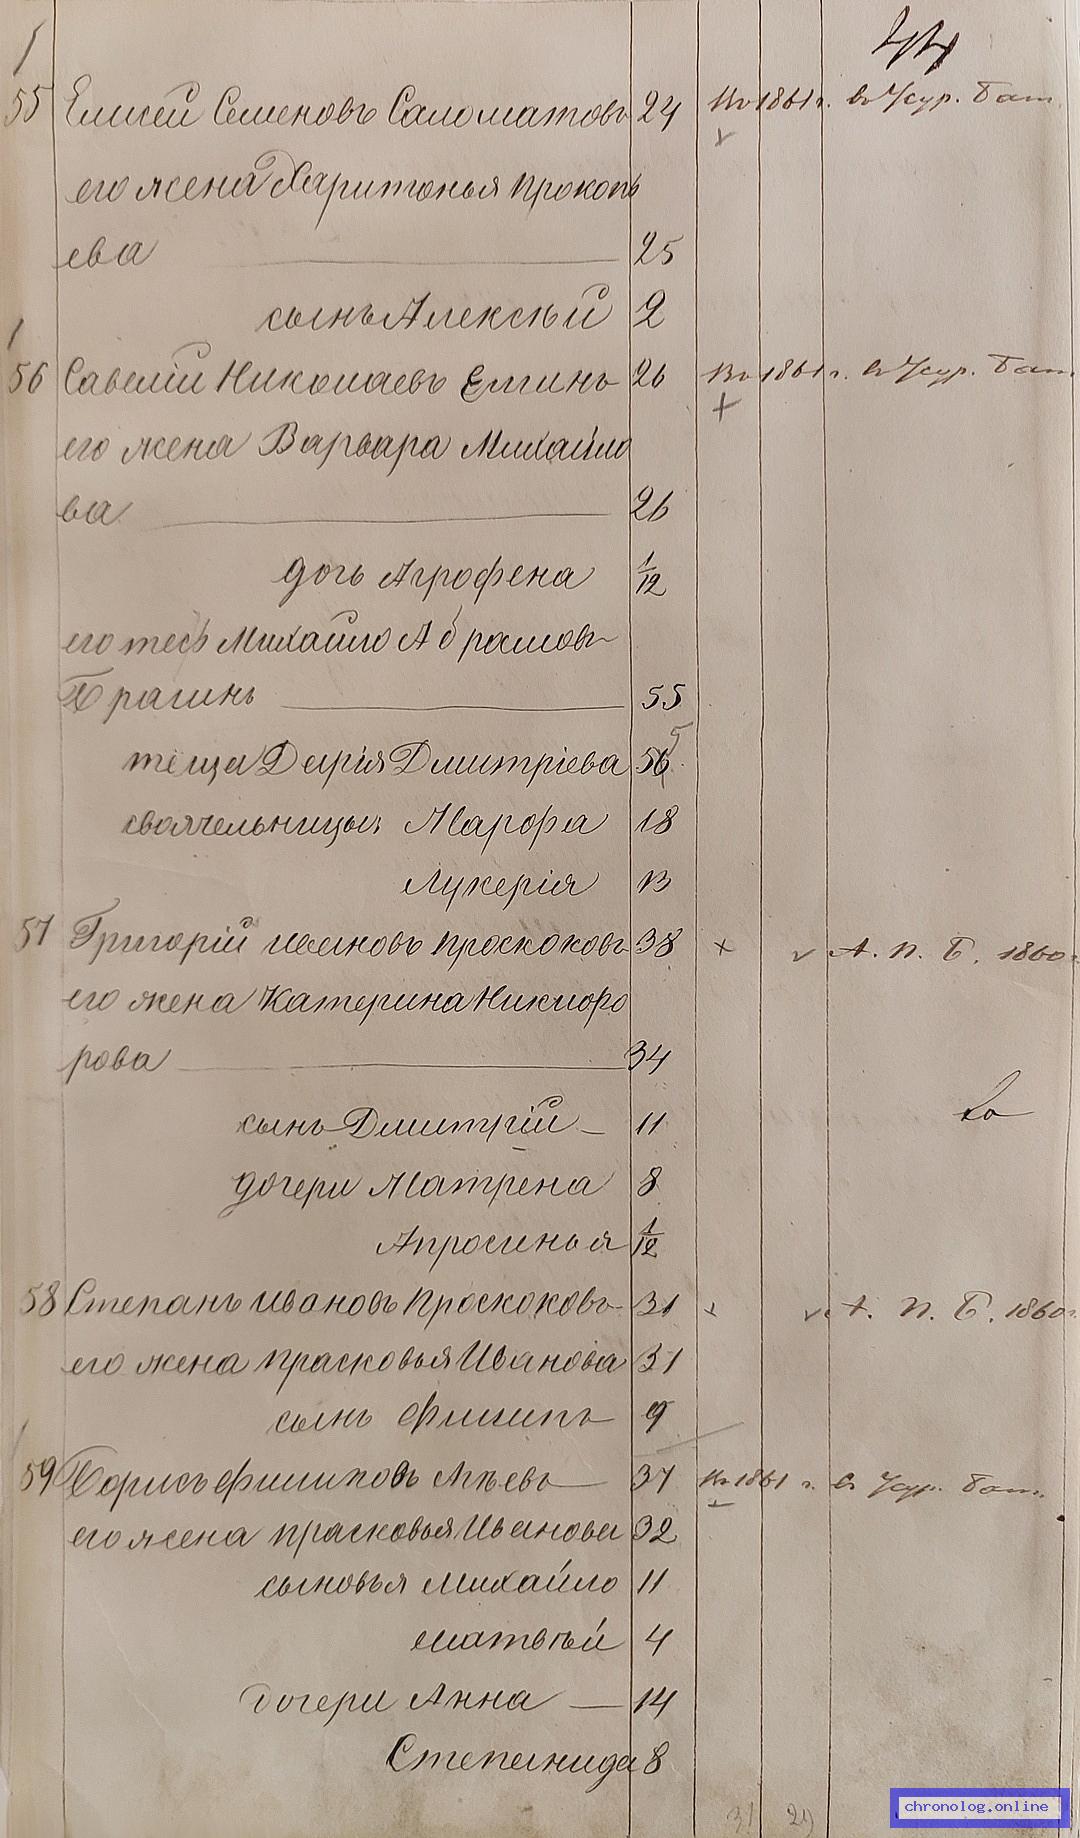 44
55 Елисей Семеновъ Саломатовъ 24 Въ 1861 г. въ Усур. Бат.
его жена Харитонья Прокопь
ева 25
сынъ Алексѣй 2
56 Савелій Николаевъ Елгинъ 26 Въ 1861 г. въ Усур. Бат.
его жена Варвара Михайло
ва 26
дочь Агрофена 1/12
его тесь Михайло Абрамовъ
Брагинъ 55
теща Дарія Дмитріева 56 5
своячельницы: Марфа 18
Лукерія 13
57 Григорій Ивановъ Проскоковъ 38 А. П. Б. 1860 г.
его жена Катерина Никифо
рова 34
сынъ Дмитрій 11
дочери Матрена 8
Апросинья 1/12
58 Степанъ Ивановъ Проскоковъ 31 А. П. Б. 1860 г.
его жена Прасковья Иванова 31
сынъ Филипъ 9
59 Борисъ Филиповъ 37 Въ 1861 г. въ Усур. Бат.
его жена Прасковья Иванова 32
сыновья Михайло 11
Матвѣй 4
дочери Анна 14
Степанида 8
31 29
chronolog.online